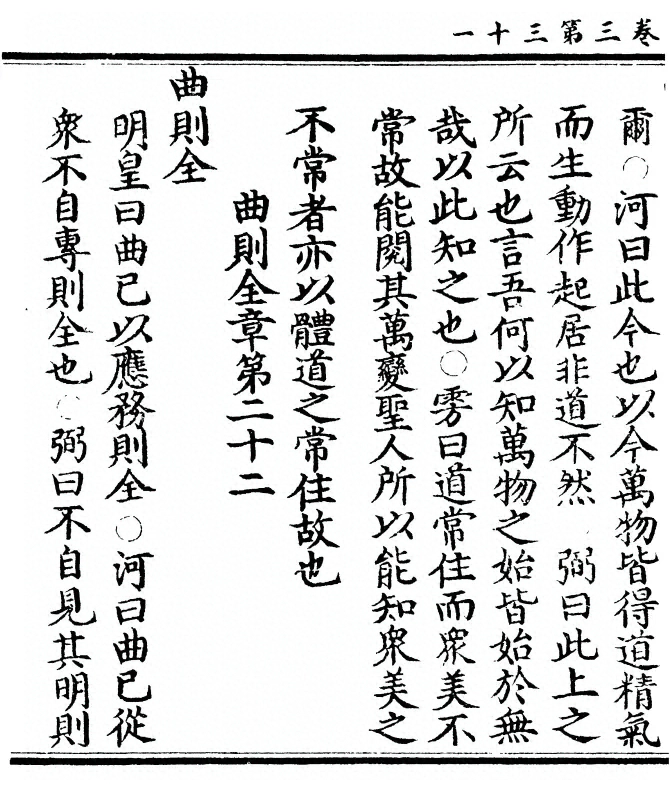 卷三第三十一
爾○河曰此今也以今萬物皆得道精氣
而生動作起居非道不然○弼曰此上之
所云也言吾何以知萬物之始皆始於無
哉以此知之也○雱曰道常住而衆美不
常故能閱其萬變聖人所以能知衆美之
不常者亦以體道之常住故也
曲則全章第二十二
曲則全
明皇曰曲己以應務則全○河曰曲己從
衆不自專則全也○弼曰不自見其明則